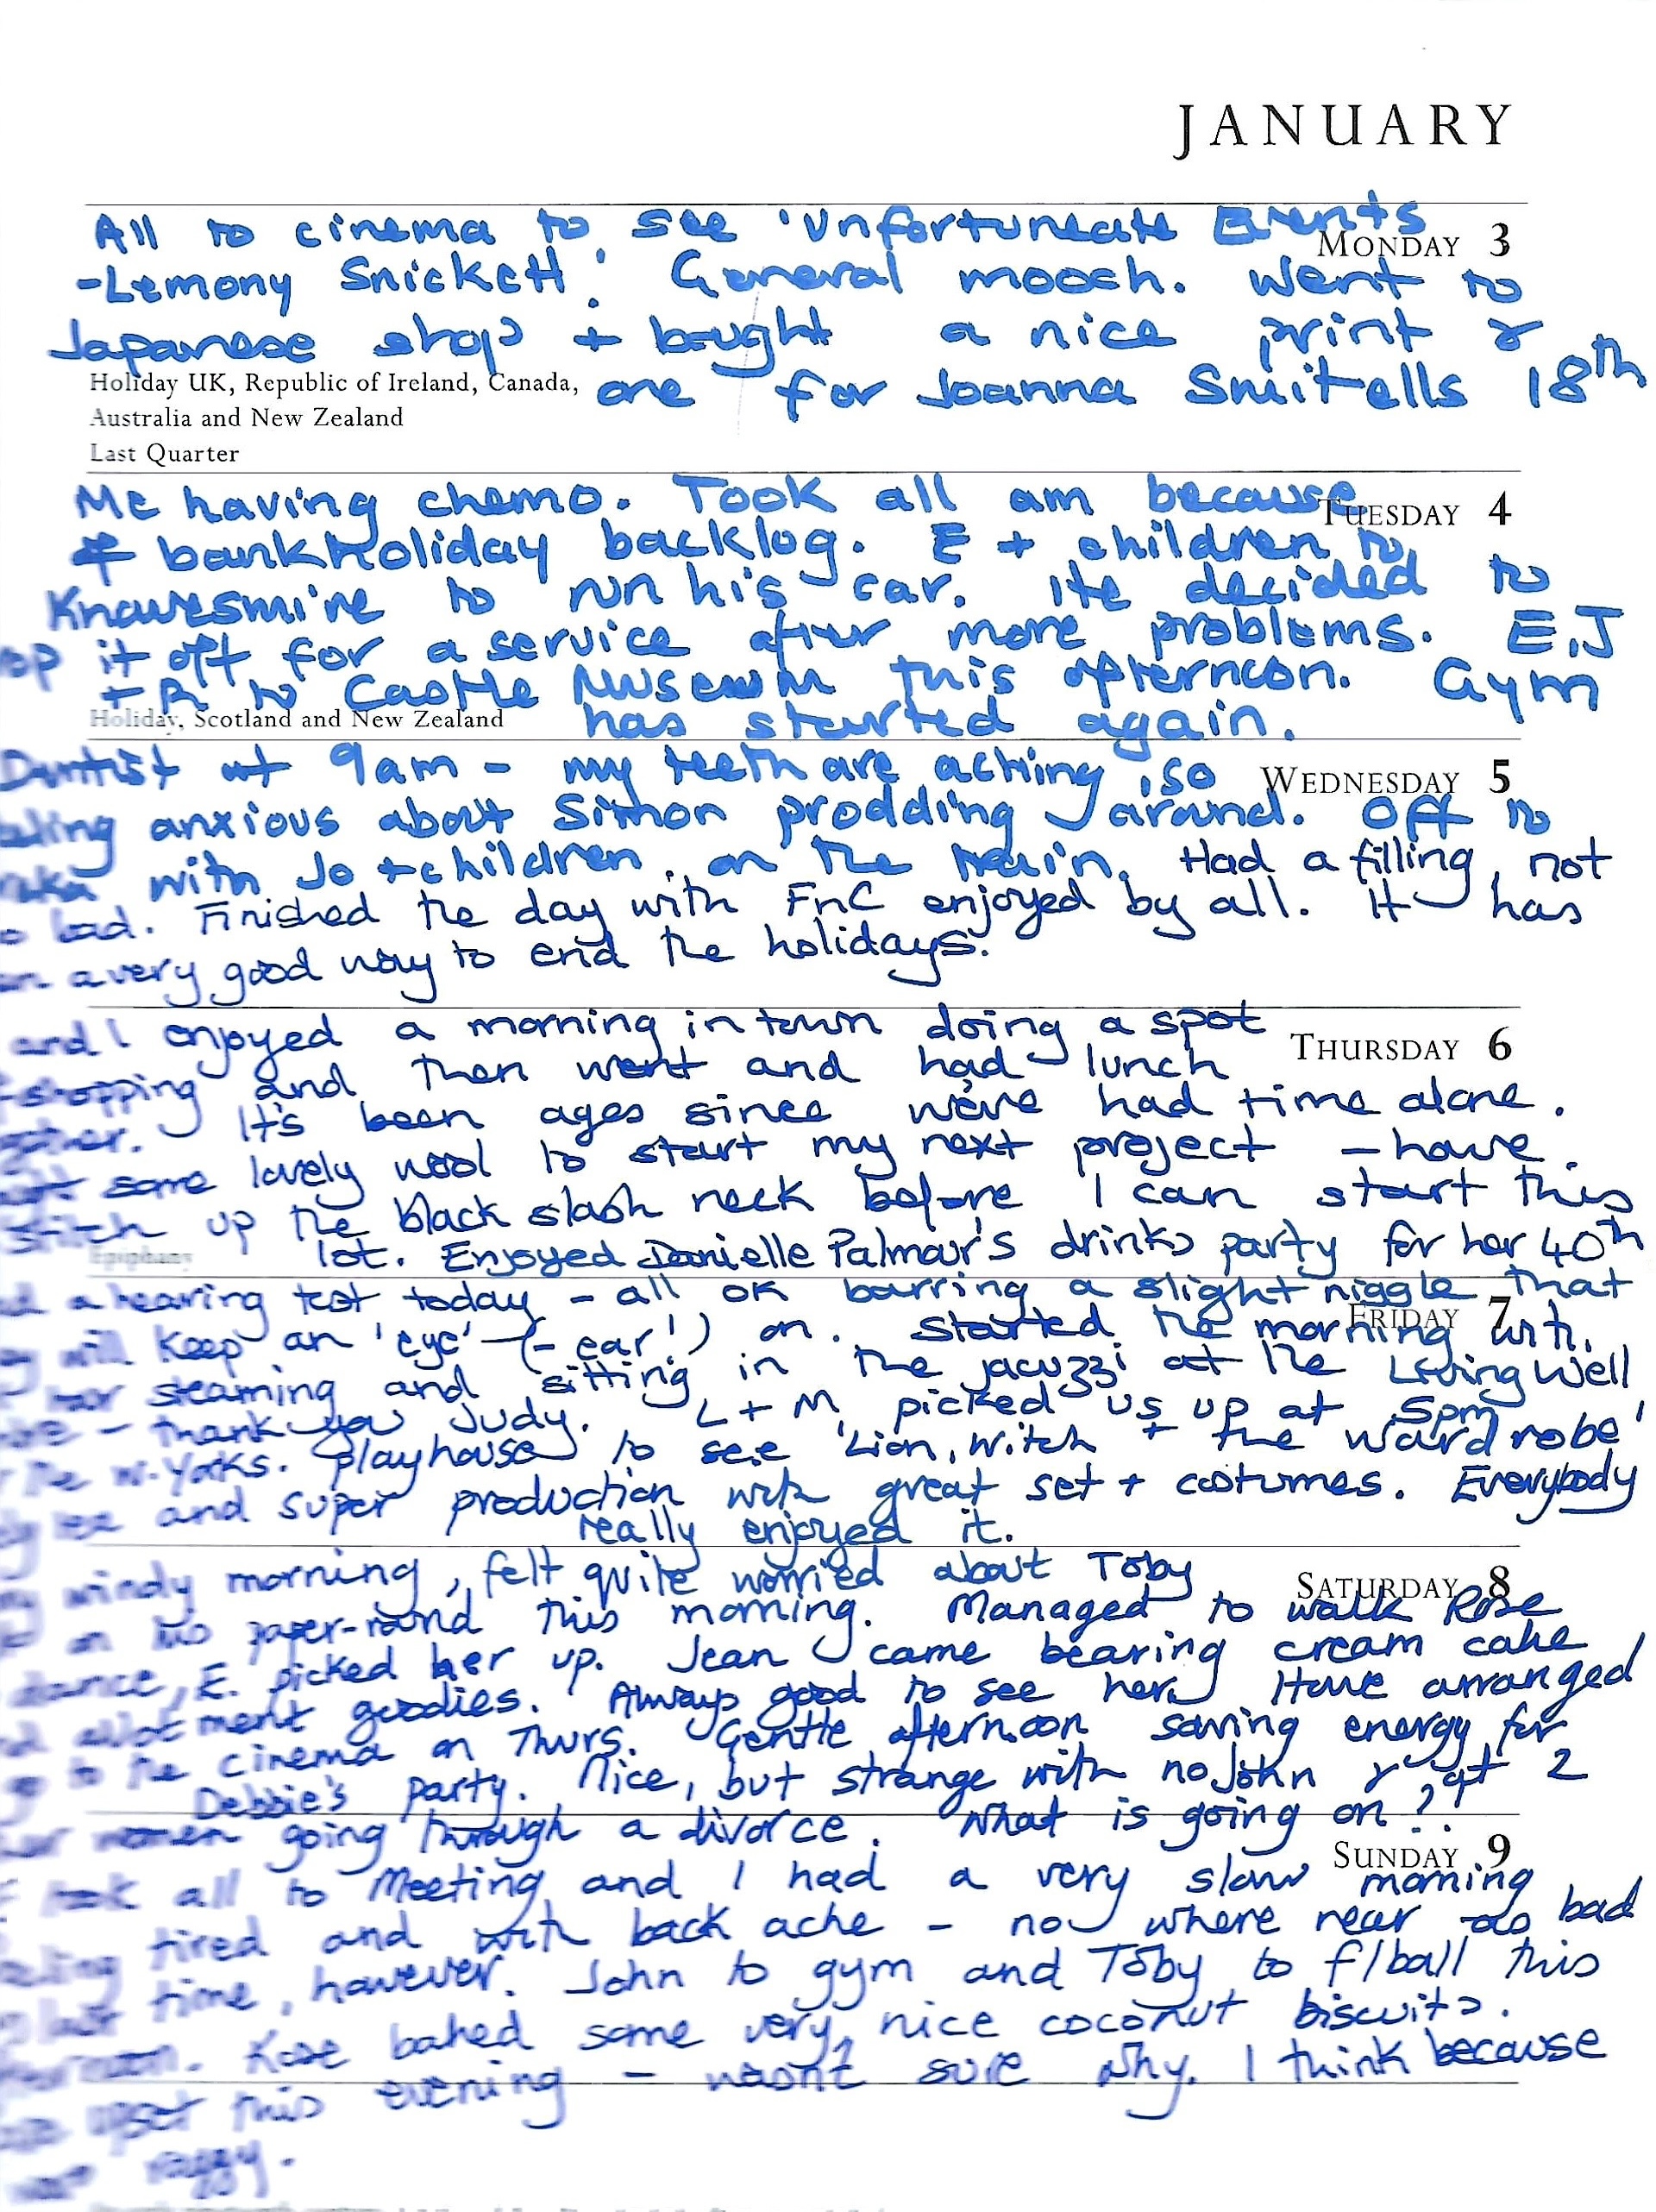 JANUARY
All to cinema to see 'Unfortuneate Events
MONDAY 3
-Lemony Snickett'. General mooch. Went to
Japanese shop + bought a nice print &
Holiday UK, Republic of Ireland, Canada,
one for Joanna Smitells 18th
Australia and New Zealand
Last Quarter
Me having chemo. Took all am because
TUESDAY 4
of bankholiday backlog. E + children to
Knavesmire to run his car. He decided to
it off for a service after more problems. E, J
+ R to Castle Museum this afternoon. Gym
Holiday, Scotland and New Zealand
has started again.
Dentist at 9am - my teeth are aching, so
WEDNESDAY 5
anxious about Simon prodding around. Off to
with Jo + children on the train. Had a filling, not
bad. Finished the day with FnC enjoyed by all. It has
a very good way to end the holidays.
and I enjoyed a morning in town doing a spot
THURSDAY 6
shopping and then went and had lunch
It's been ages since we've had time alone.
some lovely wool to start my next project - have
stitch up the black slash neck before I can start this
Epiphany
lot. Enjoyed Danielle Palmar's drinks party for her 40th
a hearing test today - all OK barring a slight niggle that
FRIDAY 7
will keep an 'eye' (- ear!) on. Started the morning with
steaming and sitting in the jacuzzi at the Living Well
- thank you Judy. L + M picked us up at 5pm
the W. Yorks. playhouse to see 'Lion, Witch + the wardrobe'
and super production with great set + costumes. Everybody
really enjoyed it.
windy morning, felt quite worried about Toby
SATURDAY 8
on his paper-round this morning. Managed to walk Rose
dance, E. picked her up. Jean came bearing cream cake
allotment goodies. Always good to see her. Have arranged
to the cinema on Thurs. Gentle afternoon saving energy for
Debbie's party. Nice, but strange with no John & at 2
women going through a divorce. What is going on?!
SUNDAY 9
took all to Meeting and I had a very slow morning
tired and with back ache - no where near as bad
last time, however. John to gym and Toby to f/ball this
Rose baked some very nice coconut biscuits.
upset this evening - wasn't sure why. I think because
raggy.